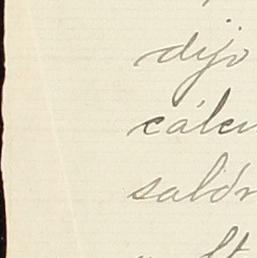 dijo
cálcu
saldr